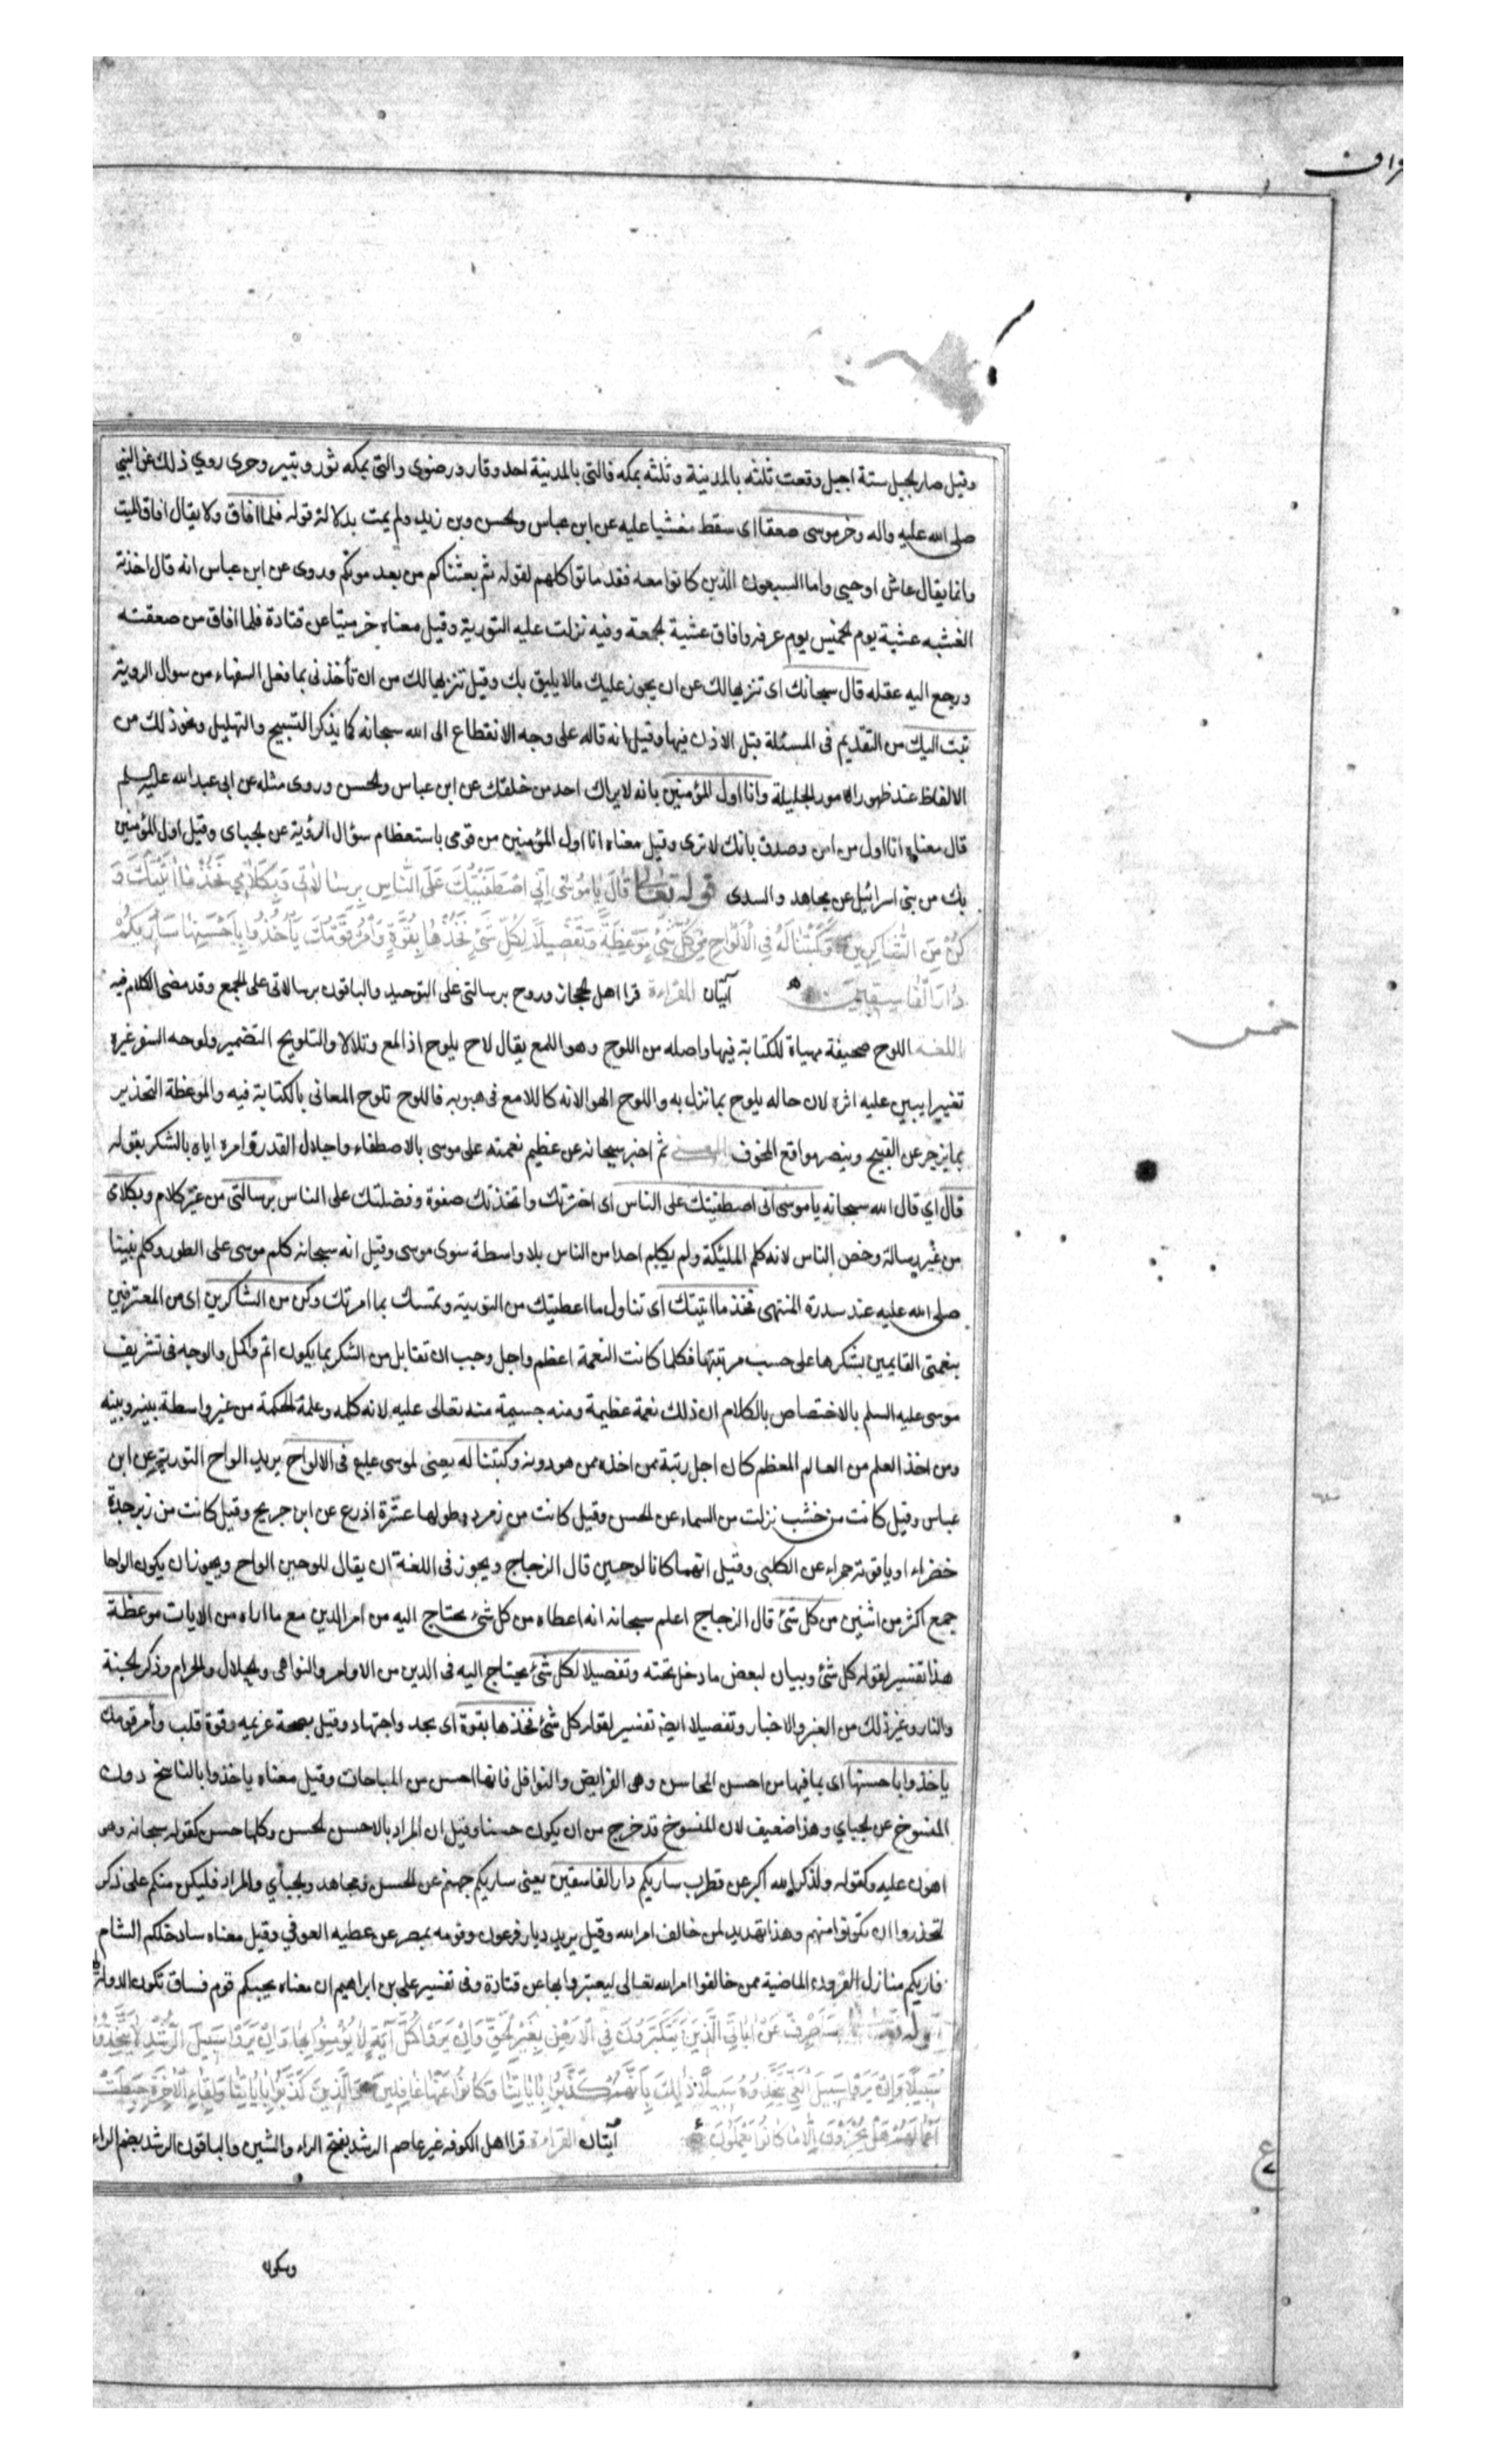 وقيل صار الجبل ستة اجبل وقعت ثلثه بالمدينة وثلثه بمكه فالتى بالمدينة احد وقار ورضوى والتى بمكه ثور وثبير وحرى روي ذلك عن النبي
صلى الله عليه واله وخر موسى صعقا اى سقط مغشيا عليه عن ابن عباس والحسن وبن زيد ولم يمت بدلالة قوله فلما افاق ولا يقال افاق الميت
وانما يقال عاش او حيى واما السبعون الذين كانوا معه فقد ماتوا كلهم لقوله ثم بعثناكم من بعد موتكم وروى عن ابن عباس انه قال اخذته
الغشيه عشية يوم الخميس يوم عرفه وافاق عشية الجمعة وفيه نزلت عليه التورية وقيل معناه خر ميتا عن قتادة فلما افاق من صعقته
ورجع اليه عقله قال سبحانك اى تنزيها لك عن ان يجوز عليك ما لا يليق بك وقيل تنزيها لك من ان تأخذنى بما فعل السفهاء من سوال الروية
تبت اليك من التقديم فى المسئلة قبل الاذن فيها وقيل انه قاله على وجه الانقطاع الى الله سبحانه كما يذكر التسبيح والتهليل ونحو ذلك من
الالفاظ عند ظهور الامور الجليلة وانا اول المؤمنين بانه لا يراك احد من خلقك عن ابن عباس والحسن وروى مثله عن ابى عبد الله عليه السلم
قال معناه انا اول من امن وصدق بانك لا ترى وقيل معناه انا اول المؤمنين من قومى باستعظام سؤال الرؤية عن الجباى وقيل اول المؤمنين
بك من بنى اسرائيل عن مجاهد والسدى قوله تعالى قَالَ يَا مُوسَى اِنِّي اصْطَفَيْتُكَ عَلَى النَّاسِ بِرِسَالَاتِي وَبِكَلَامِي فَخُذْ مَا اٰتَيْتُكَ وَ
كُنْ مِنَ الشَّاكِرِينَ وَكَتَبْنَا لَهُ فِي الْاَلْوَاحِ مِنْ كُلِّ شَيْءٍ مَوْعِظَةً وَتَفْصِيلًا لِكُلِّ شَيْءٍ فَخُذْهَا بِقُوَّةٍ وَأْمُرْ قَوْمَكَ يَأْخُذُوا بِاَحْسَنِهَا سَاُرِيكُمْ
دَارَ الْفَاسِقِينَ آيتان القراءة قرا اهل الحجاز وروح برسالتى على التوحيد والباقون برسالاتى على الجمع وقد مضى الكلام فيه
خمس
اللغه اللوح صحيفة مهياة للكتابة فيها واصله من اللوح وهو اللمع يقال لاح يلوح اذا لمع وتلالا والتلويح التضمير ولوحه السفر غيره
تغييرا يبين عليه اثره لان حاله يلوح بما نزل به واللوح الهوا لانه كاللامع فى هبوبه فاللوح تلوح المعانى بالكتابة فيه والموعظة التحذير
بما يزجر عن القبيح ويبصر مواقع المخوف المعنى ثم اخبر سبحانه عن عظيم نعمته على موسى بالاصطفاء واجلال القدر وامره اياه بالشكر بقوله
قال اي قال الله سبحانه يا موسى انى اصطفيتك على الناس اى اخترتك واتخذتك صفوة وفضلتك على الناس برسالتى من غير كلام وبكلامى
من غير رسالة وخص الناس لانه كلم المليكة ولم يكلم احدا من الناس بلا واسطة سوى موسى وقيل انه سبحانه كلم موسى على الطور وكلم نبينا
صلى الله عليه عند سدرة المنتهى فخذ ما اتيتك اى تناول ما اعطيتك من التورية وتمسك بما امرتك وكن من الشاكرين اى من المعترفين
بنعمتى القايمين بشكرها على حسب مرتبتها فكلما كانت النعمة اعظم واجل وجب ان تقابل من الشكر بما يكون اتم واكمل والوجه فى تشريف
موسى عليه السلم بالاختصاص بالكلام ان ذلك نعمة عظيمة ومنه جسيمة منه تعالى عليه لانه كلمه وعلمه الحكمة من غير واسطة بينه وبينه
ومن اخذ العلم من العالم المعظم كان اجل رتبة ممن اخذه ممن هو دونه وكتبنا له يعنى لموسى عليه فى الالواح يريد الواح التورية عن ابن
عباس وقيل كانت من خشب نزلت من السماء عن الحسن وقيل كانت من زمرد وطولها عشرة اذرع عن ابن جريج وقيل كانت من زبرجدة
خضراء او ياقوتة حمراء عن الكلبى وقيل انهما كانا لوحين قال الزجاج ويجوز فى اللغة ان يقال للوحين الواح ويجوز ان يكون الواحا
جمع اكثر من اثنين من كل شئ قال الزجاج اعلم سبحانه انه اعطاه من كل شئ يحتاج اليه من امر الدين مع ما اراه من الايات موعظة
هذا تفسير لقوله كل شئ وبيان لبعض ما دخل تحته وتفصيلا لكل شئ يحتاج اليه فى الدين من الاوامر والنواهى والحلال والحرام وذكر الجنة
والنار وغير ذلك من العبر والاخبار وتفصيلا ايضا تفسير لقوله كل شئ فخذها بقوة اى بجد واجتهاد وقيل بصحة عزيمه وقوة قلب وأمر قومك
ياخذوا باحسنها اى بما فيها من احسن المحاسن وهى الفرايض والنوافل فانها احسن من المباحات وقيل معناه ياخذوا بالناسخ دون
المنسوخ عن الجباي وهذا ضعيف لان المنسوخ قد خرج من ان يكون حسنا وقيل ان المراد بالاحسن الحسن وكلها حسن كقوله سبحانه وهو
اهون عليه وكقوله ولذكر الله اكبر عن قطرب ساريكم دار الفاسقين يعنى ساريكم جهنم عن الحسن ومجاهد والجباي والمراد فليكن منكم على ذكر
لتحذروا ان تكونوا منهم وهذا تهديد لمن خالف امر الله وقيل يريد ديار فرعون وقومه بمصر عن عطيه العوفي وقيل معناه سادخلكم الشام
فاريكم منازل القرون الماضية ممن خالفوا امر الله تعالى ليعتبروا بها عن قتادة وفى تفسير على بن ابراهيم ان معناه يجيئكم قوم فساق تكون الدولة لهم
قوله تعالى سَاَصْرِفُ عَنْ اٰيَاتِيَ الَّذِينَ يَتَكَبَّرُونَ فِي الْاَرْضِ بِغَيْرِ الْحَقِّ وَاِنْ يَرَوْا كُلَّ آيَةٍ لَا يُؤْمِنُوا بِهَا وَاِنْ يَرَوْا سَبِيلَ الرُّشْدِ لَا يَتَّخِذُوهُ
سَبِيلًا وَاِنْ يَرَوْا سَبِيلَ الْغَيِّ يَتَّخِذُوهُ سَبِيلًا ذٰلِكَ بِاَنَّهُمْ كَذَّبُوا بِاٰيَاتِنَا وَكَانُوا عَنْهَا غَافِلِينَ وَالَّذِينَ كَذَّبُوا بِاٰيَاتِنَا وَلِقَاءِ الْاٰخِرَةِ حَبِطَتْ
اَعْمَالُهُمْ هَلْ يُجْزَوْنَ اِلَّا مَا كَانُوا يَعْمَلُونَ آيتان القراءة قرا اهل الكوفه غير عاصم الرشد بفتح الراء والشين والباقون الرشد بضم الراء
ع
وسكون